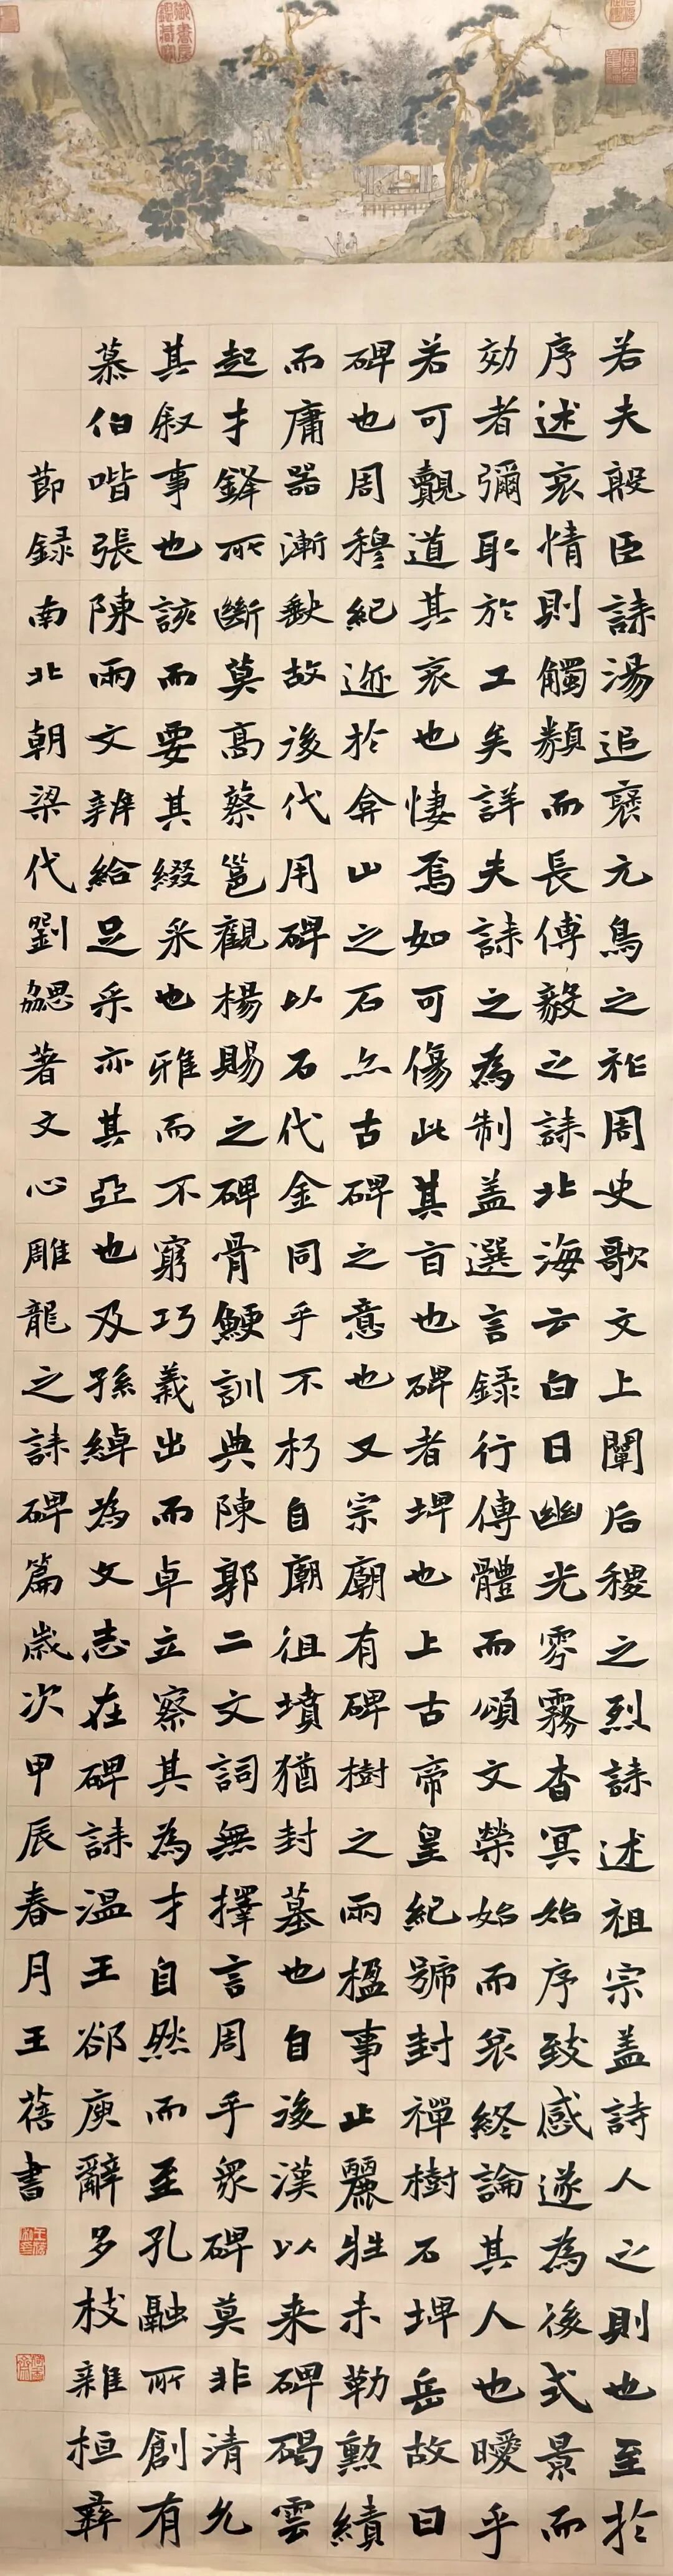 若夫殷臣誄湯追褒元鳥之祚周史歌文上闡后稷之烈誄述祖宗盖詩人之則也至於
序述哀情則觸類而長傅毅之誄北海云白日幽光雰霧杳冥始序致感遂為後式景而
効者彌取於工矣詳夫誄之為制盖選言録行傳體而頌文榮始而哀終論其人也曖乎
若可覿道其哀也悽焉如可傷此其旨也碑者埤也上古帝皇紀號封禪樹石埤岳故曰
碑也周穆紀迹於弇山之石亦古碑之意也又宗廟有碑樹之兩楹事止麗牲未勒勲績
而庸器漸缺故後代用碑以石代金同乎不朽自廟徂墳猶封墓也自後漢以来碑碣雲
起才鋒所斷莫高蔡邕觀楊賜之碑骨鯁訓典陳郭二文詞無擇言周乎衆碑莫非清允
其叙事也該而要其綴采也雅而不窮巧義出而卓立察其為才自然而至孔融所創有
慕伯喈張陳兩文辨給足采亦其亞也及孫綽為文志在碑誄溫王郤庾辭多枝雜桓彝
節録南北朝梁代劉勰著文心雕龍之誄碑篇歲次甲辰春月王蓓書